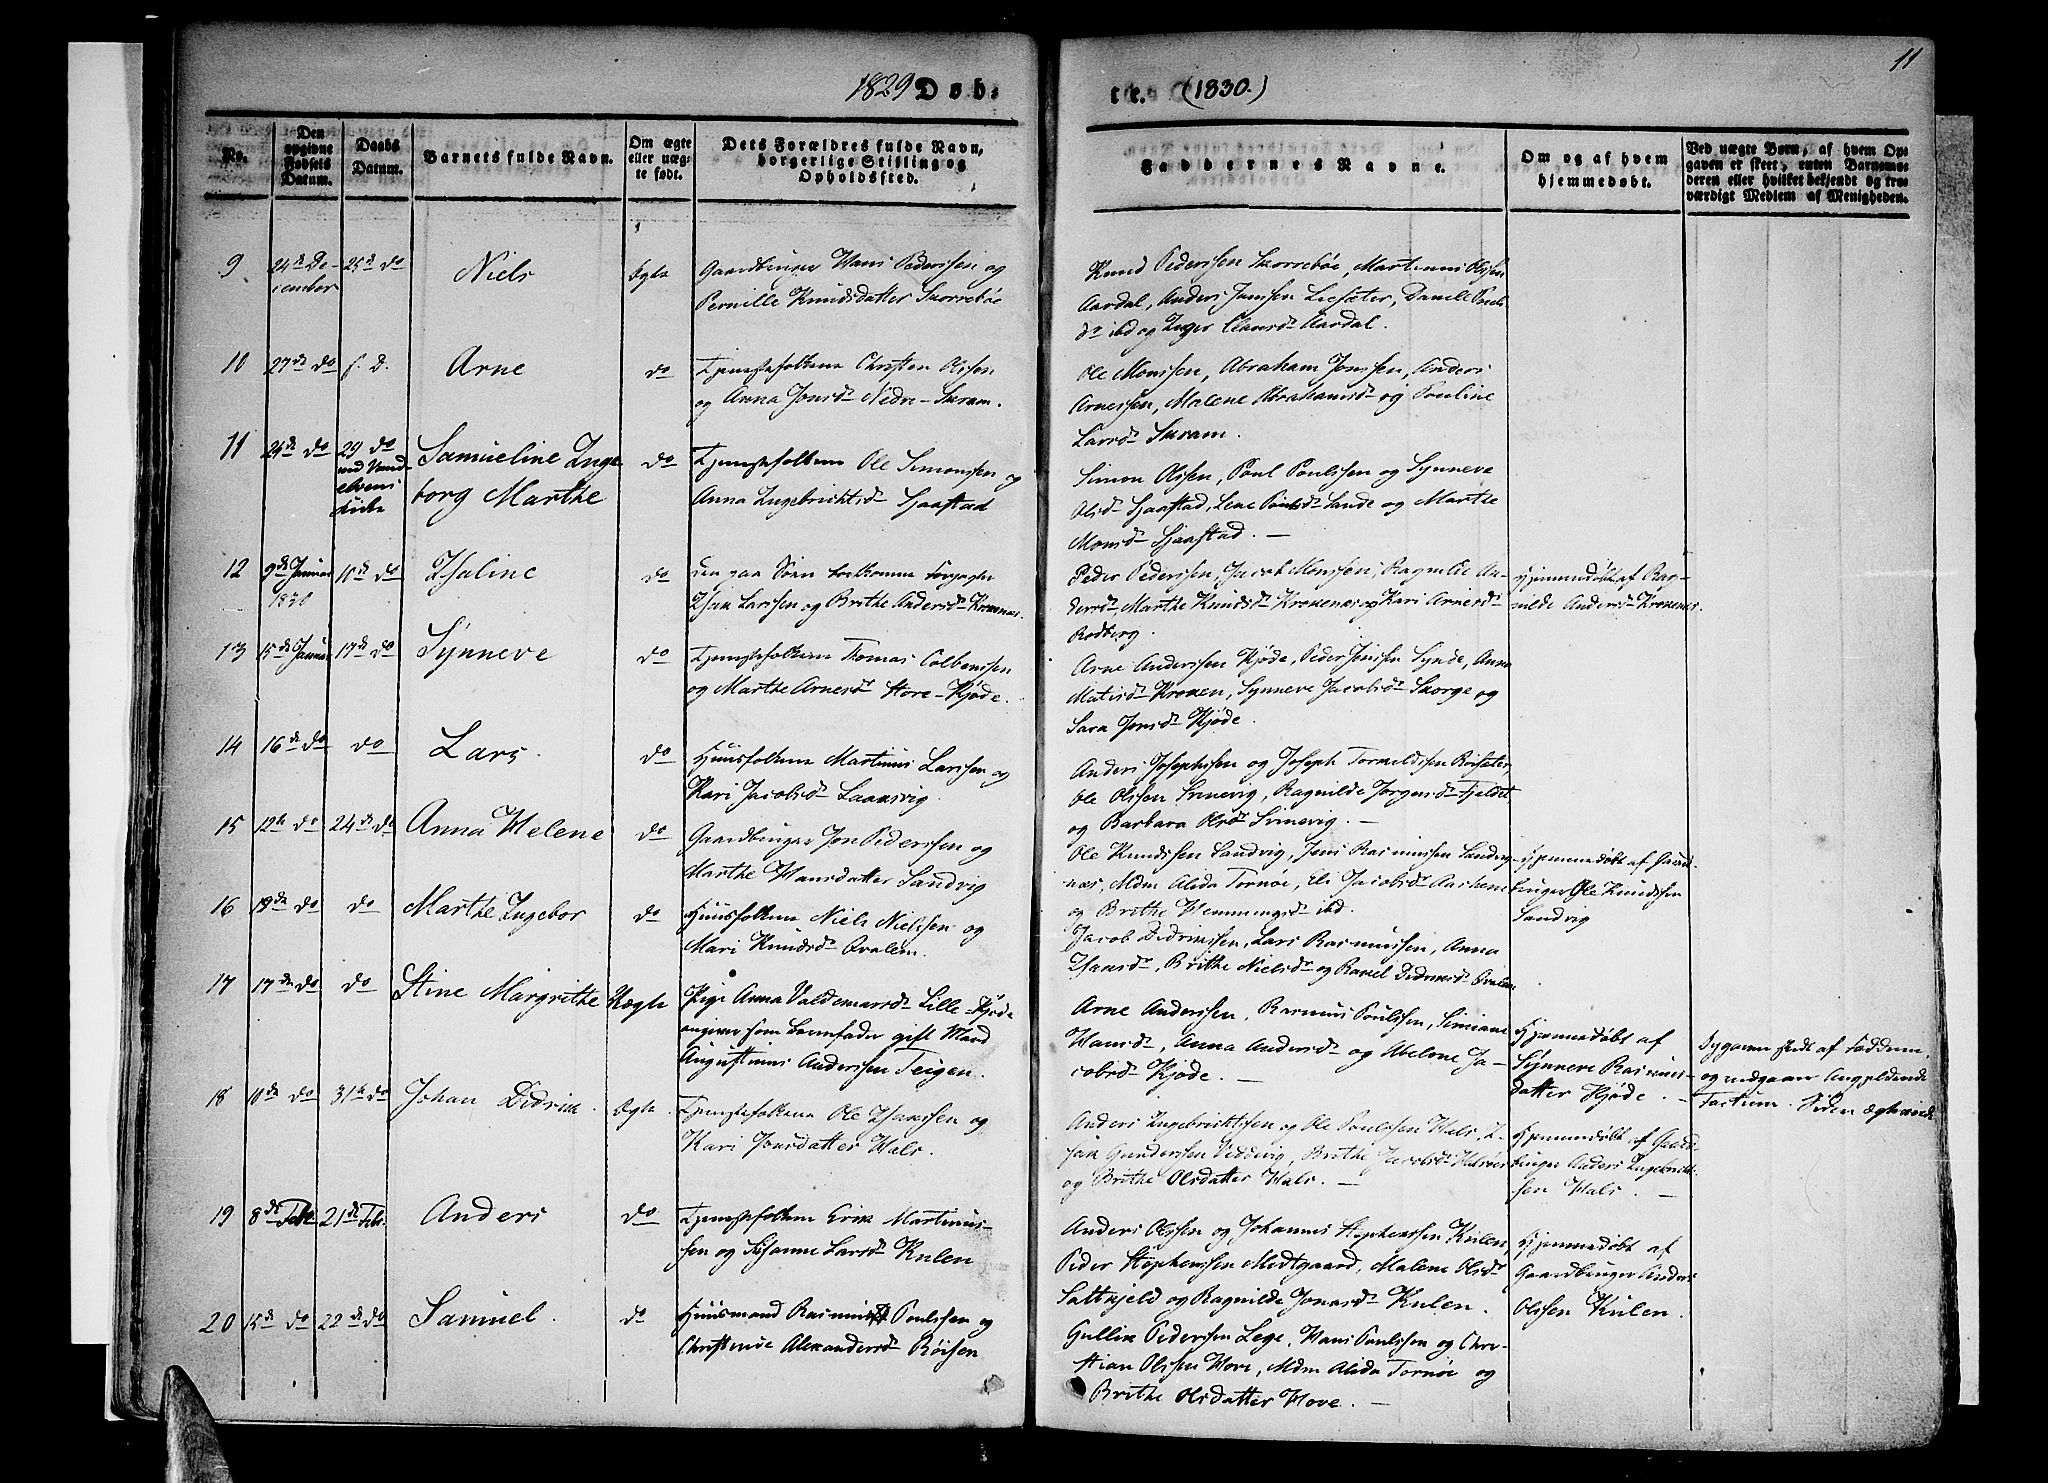 1829 Døb-
te. (1830.)
11
No.
Den opgivne Fødsels Datum.
Daabs Datum.
Barnets fulde Navn.
Om ægte eller uægte født.
Dets Forældres fulde Navn, borgerlige Stilling og Opholdssted.
Faddernes Navne.
Om og af hvem hjemmedøbt.
Ved uægte Børn, af hvem Opgaven er skeet, enten Barnemoderen eller hvilket bekjendt og troværdigt Medlem af Menigheden.
9
24de De-
cember
25de do
Niels
Ægte
Gaardbruger Hans Pederssen og
Pernille Knudsdatter Skorrebøe
Knud Pederssen Skorrebøe, Martinus Olssen
Aardal, Anders Janssen Liesæter, Danele Pouls-
dr ibd og Inger Clausdr Aardal.
10
27de do
f. D.
Arne
do
Tjenestefolkene Christen Olssen
og Anna Jonsdr Nedre-Suram.
Ole Monssen, Abraham Jonssen, Anders
Arnessen, Malene Abrahamsdr og Pouline
Larsdr Suram.
11
24de do
29 do
ved Vand-
elvens
Kirke
Samueline Inge
borg Marthe
do
Tjenestefolkene Ole Simonssen og
Anna Ingebrichtsdr Sjaastad
Simon Olssen, Poul Poulssen og Synneve
Olsdr Sjaastad, Lene Poulsdr Sande og Marthe
Monsdr Sjaastad. —
12
9de Januar
1830
10de do
Isaline
do
Isak Larssen og Brithe Andersdr Kroxenæs.
Peder Pederssen, Jacob Monssen, Ragnilde An-
dersdr, Marthe Knudsdr Kroxenæs og Kari Arnesdr
Rødberg.
Hjemmedøbt af Rag-
nilde Andersdr Kroxenes.
13
15de Januar
17de do
Synneve
do
Tjenestefolkene Thomas Colbenssen
og Marthe Arnesdr Store-Kjøde.
Arne Anderssen Kjøde, Peder Jenssen Synde, Anna
Matisdr Kroxen, Synneve Jacobsdr Skorge og
Sara Jonsdr Kjøde.
14
16de do
do
Lars.
do
Huusfolkene Martinus Larssen og
Kari Jacobsdr Laanvig.
Anders Josephsen og Joseph Tormeldssen Roisæter,
Ole Olssen Svinevig, Ragnilde Jørgensdr Fjeldet
og Barbara Olsdr Svinevig. —
15
12te do
24de do
Anna Helene
do
Gaardbruger Jon Pederssen og
Marthe Hansdatter Sandvig
Ole Knudssen Sandvig, Jens Rasmussen Sandvig-
næs, Mdm Alida Tornøe, Eli Jacobsdr Aarhene
og Brithe Hemmingsdr ibd.
Hjemmedøbt af Gaard-
bruger Ole Knudssen
Sandvig
16
19de do
do
Marthe Ingebor
do
Huusfolkene Niels Nielssen og
Mari Knudsdr Qvalem.
Jacob Didrikssen, Lars Rasmussen, Anna
Isaksdr, Brithe Nielsdr og Rakel Didriksdr Qvalem
17
17de do
do
Stine Margrithe
Uægte
Pige Anna Valdemarsdr Lille-Kjøde
angiver som Barnefader gift Mand
Augustinus Anderssen Teigen.
Arne Anderssen, Rasmus Poulssen, Simiane
Hansdr, Anna Andersdr og Abelone Ja-
cobsdr Kjøde. —
Hjemmedøbt af
Synneve Rasmus-
datter Kjøde. —
Opgaven skedt af Faddern.
og vedgaaer Angjeldende
Factum.
18
10de do
31te do
Johan Didrik.
Ægte.
Tjenestefolkene Ole Isakssen og
Kari Jonsdatter Hals.
Anders Ingebrichtssen og Ole Poulssen Hals, I-
sak Gunderssen Veddvig, Brithe Jacobsdr Halsør
og Brithe Olsdatter Hals. —
Hjemmedøbt af Gaard-
bruger Anders Ingebricht-
sen Hals. —
19
8de Febr
21de Febr.
Anders
do
Tjenestefolkene Erik Martinus-
sen og Susanne Larsdr Kulen
Anders Olssen og Johannes Stephenssen Kulen,
Peder Stephenssen Midtgaard, Malene Olsdr
Saltkjeld og Ragnilde Jonasdr Kulen.
Hjemmedøbt af
Gaardbruger Anders
Olssen Kulen.
20
15de do
22de do
Samuel.
do
Huusmand Rasmus Poulssen og
Christense Alexandersdr Røisen
Gullik Pederssen Lege, Hans Poulssen og Chri-
stian Olssen Hove, Mdm Alida Tornøe og
Brithe Olsdatter Hove. —